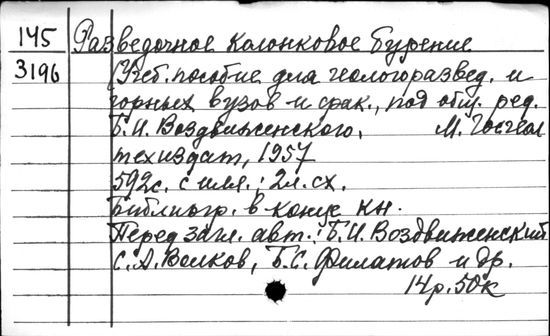 145 Разведочное колонковое бурение
3196 (Учеб. пособие для геологоразвед. и
горных вузов и фак., под общ. ред.
Б.И. Воздвиженского. М. Госгеол
техиздат, 1957
592с. с илл.; 2л.сх.
Библиогр. в конце кн.
Перед загл. авт.: Б.И. Воздвиженский
С.А. Волков, Б.С. Филатов и др.
14р.50к